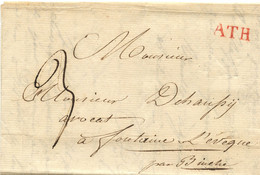 ATH
Monsieur
3
Monsieur Dehanssÿ
avocat
à fontaine L'évêque
par Binche